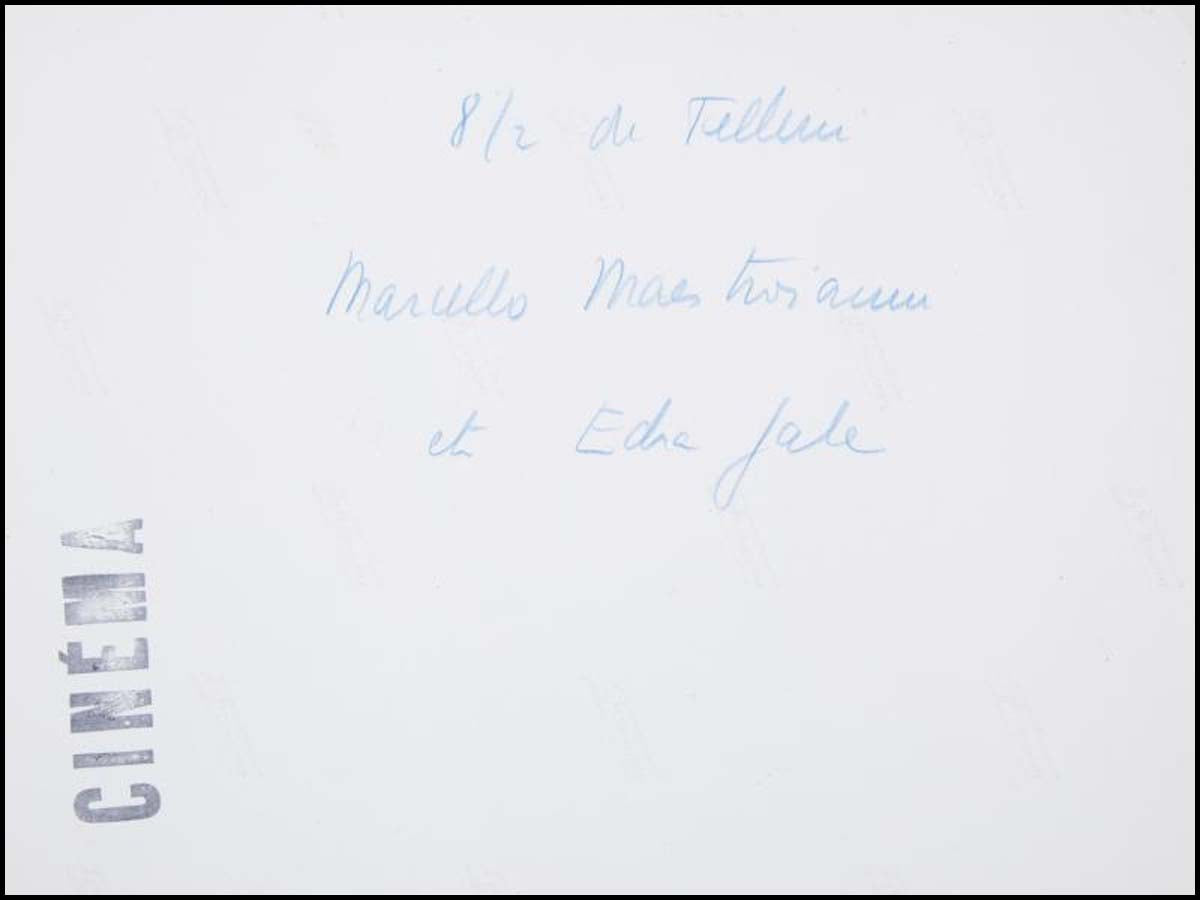 8/2 de Fellini
Marcello Maestroianni
et Edra Gale
CINÉMA